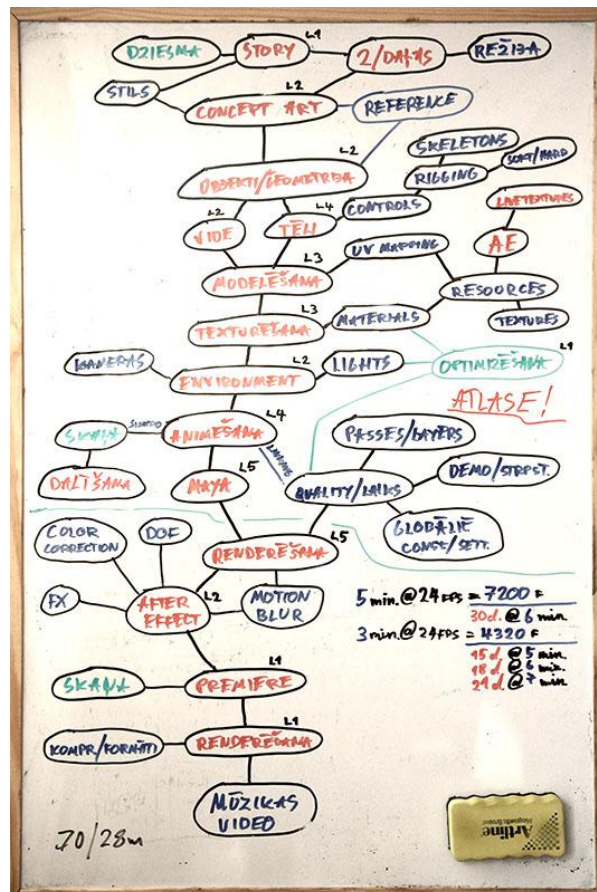 DZIESMA
STORY
L1
2/DAĻAS
REŽIJA
STILS
L2
CONCEPT ART
REFERENCE
L2
OBJEKTI/ĢEOMETRIJA
SKELETONS
RIGGING
SOFT/HARD
L2
VIDE
TĒLI
L4
CONTROLS
LIVE TEXTURES
L3
MODELĒŠANA
UV MAPPING
AE
RESOURCES
L3
TEXTURĒŠANA
MATERIALS
TEXTURES
KAMERAS
L2
ENVIRONMENT
LIGHTS
L1
OPTIMIZĒŠANA
ATLASE!
SKAŅA
L4
ANIMĒŠANA
PASSES/LAYERS
DALĪŠANA
L5
MAYA
QUALITY/LAIKS
DEMO/STRPST.
GLOBĀLIE
CONST/SETT.
COLOR
CORRECTION
DOF
RENDERĒŠANA
L5
FX
AFTER
EFFECT
L2
MOTION
BLUR
5 min. @ 24 FPS = 7200 F
30d. @ 6 min
3 min. @ 24 FPS = 4320 F
15 d. @ 5 min.
18 d. @ 6 min.
21 d. @ 7 min.
SKAŅA
L1
PREMIERE
L1
KOMPR/FORMĀTI
RENDERĒŠANA
MŪZIKAS
VIDEO
70/28m
Artline